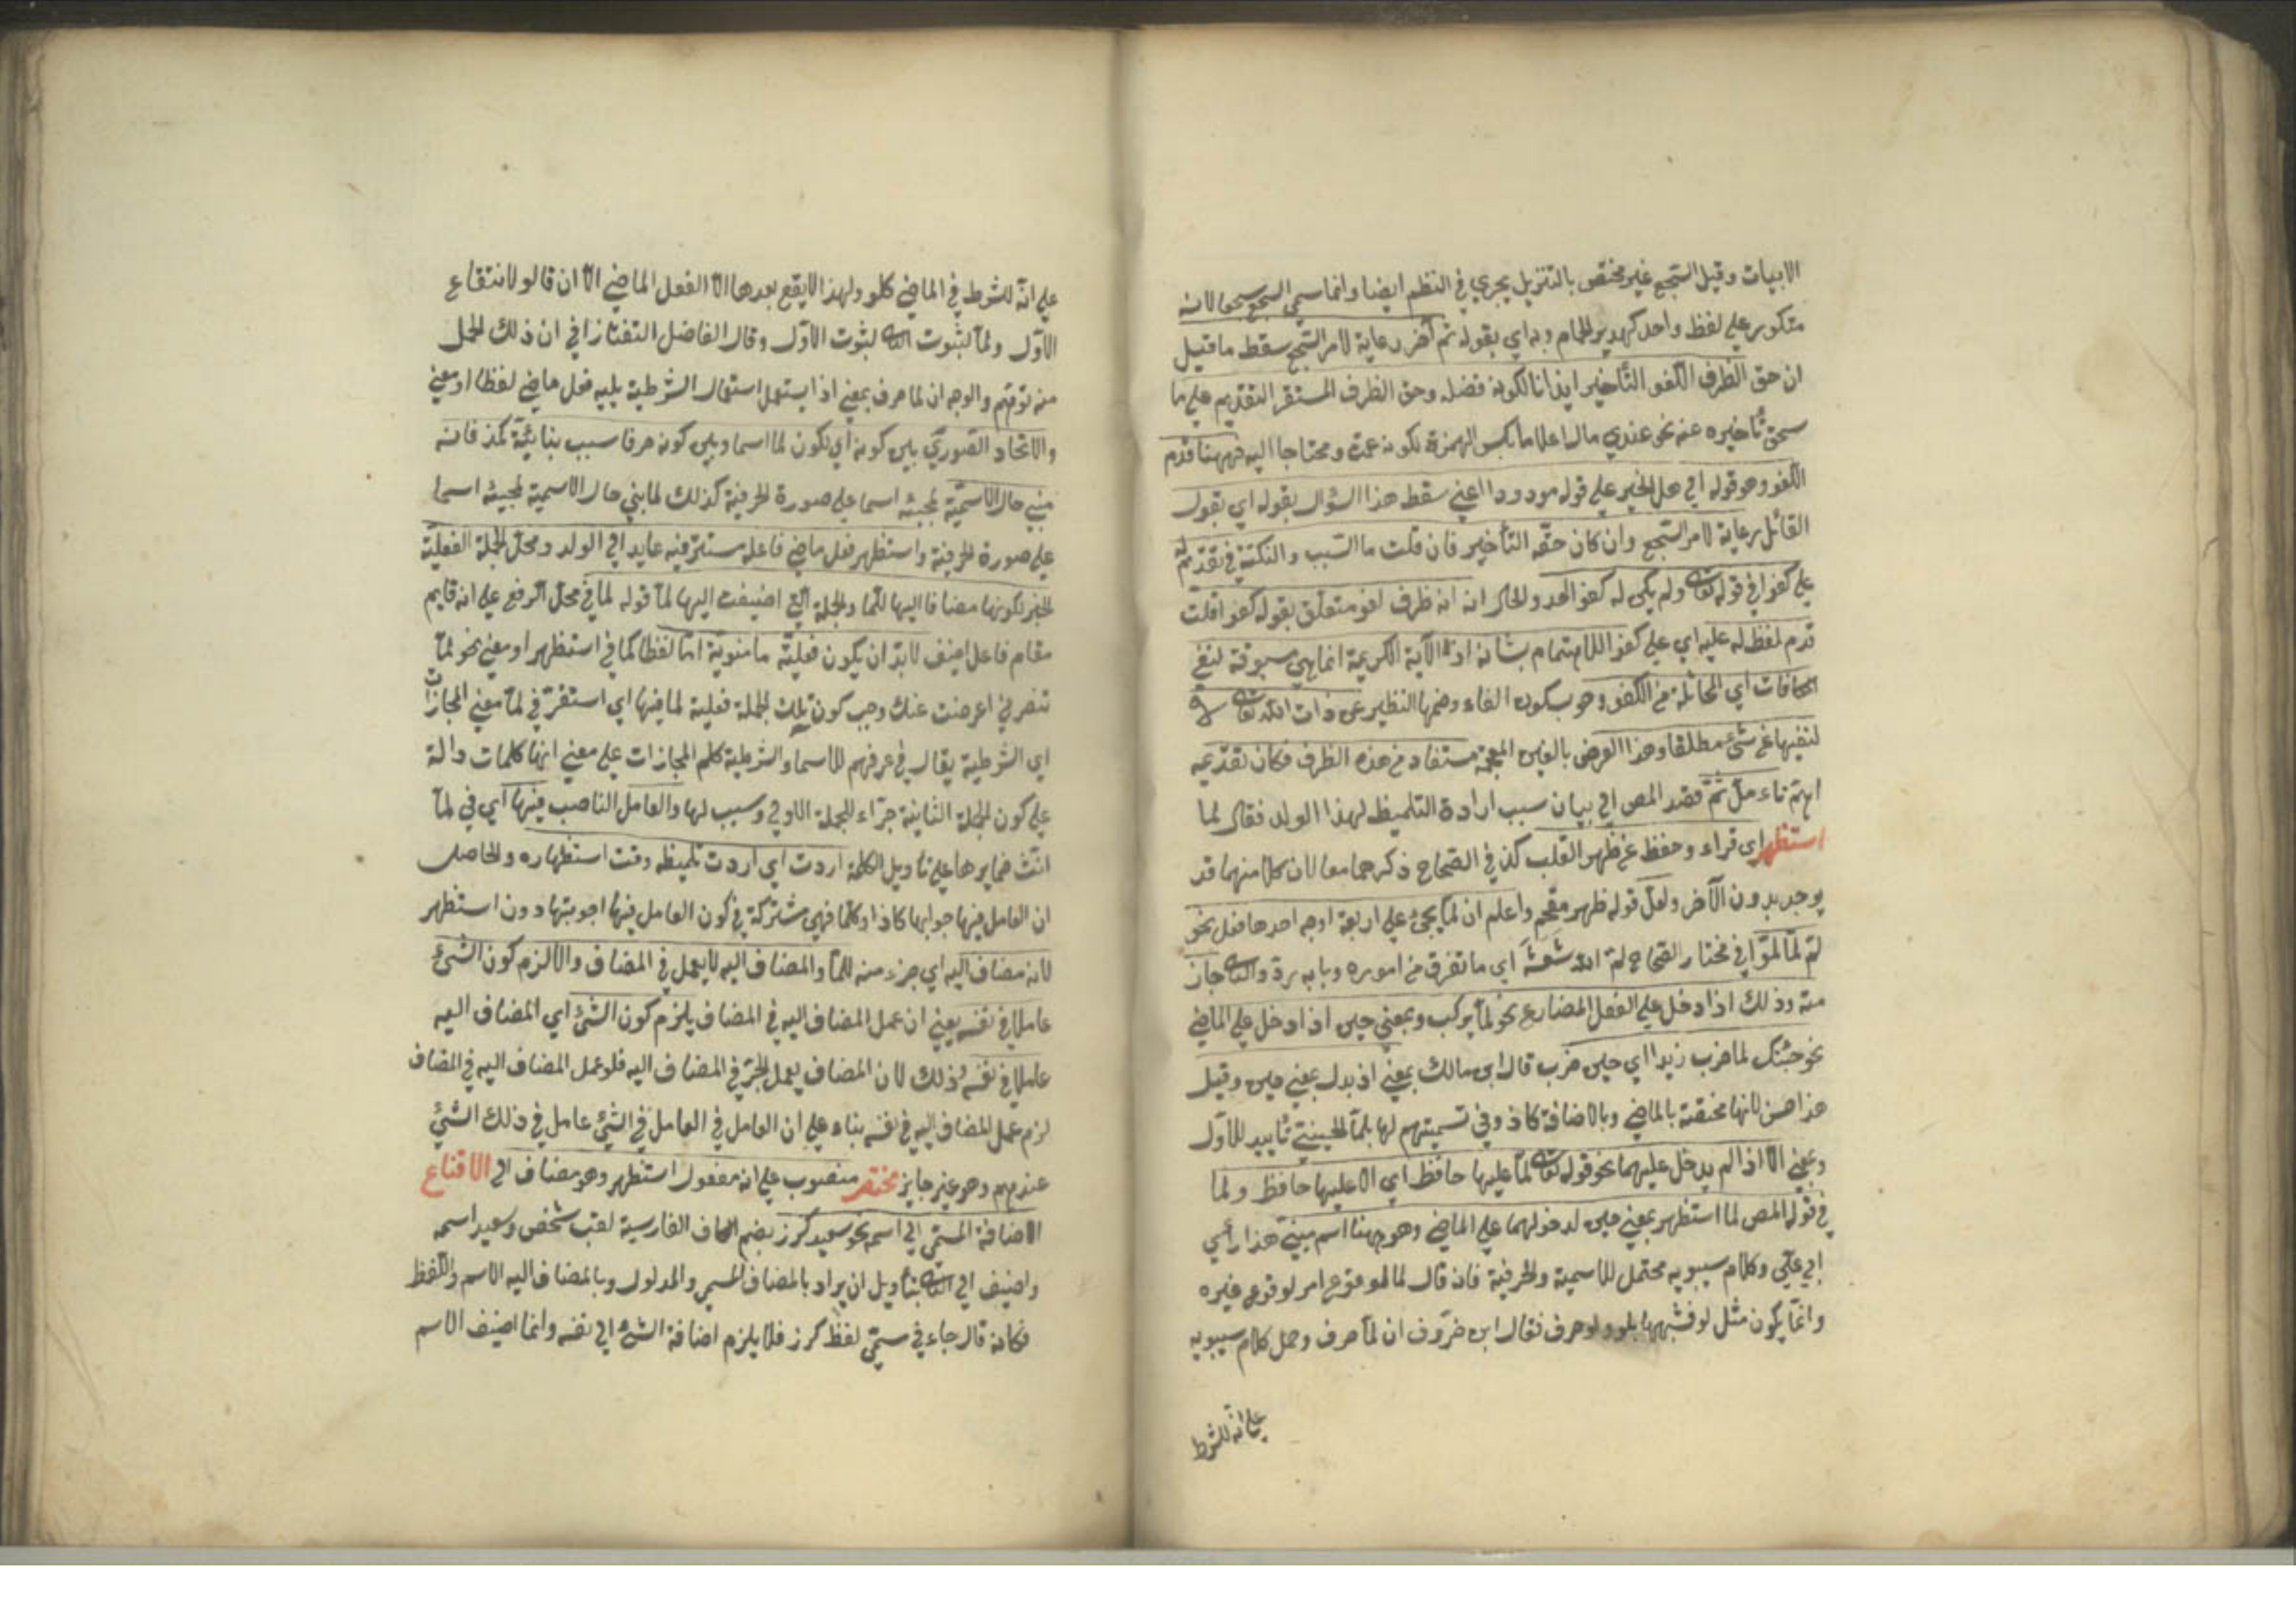 الابيات وقيل السّجع غير مختصّ بالتنزيل يجري في النظم ايضا وانما سمي السجع سجعا لانه
متكرر على لفظ واحد كهدير الحمام وبه اي بقوله ثم آخر رعاية لامر السّجع سقط ما قيل
ان حق الظرف اللغو التأخير ايذانا لكونه فضلة وحق الظرف المستقر التقديم على ما
تأخيره عنه نحو عندي مال اعلاما بكسر الهمزة بكونه عمدة ومحتاجا اليه فههنا قدم
اللغو وهو قوله الى على قوله مودودا اعني سقط هذا السّؤال بقوله اي بقول
القائل رعاية لامر السّجع وان كان حقّه التأخير فان قلت ما السّبب والنكتة في تقدّم له
على كفوا في قوله تعالى ولم يكن له كفوا احد والحال انه ظرف لغو متعلّق بقوله كفوا قلت
قدم لفظ له عليه اي على كفوا للاهتمام بشانه اذ الآية الكريمة انما هي مسوقة لنفي
المكافات اي المماثلة من الكفو وهو بسكون الفاء وضمها النظير عن ذات الله تعالى
لنفيها عن شيء مطلقا وهذا الغرض بالغين المعجمة مستفاد من هذه الظرف فكان تقديمه
اهمّ تاءمل ثمّ قصد المص الى بيان سبب ارادة التلميظ لهذا الولد فقال لما
استظهر اى قراء وحفظ عن ظهر القلب كذ في الصّحاح ذكرهما معا لان كلا منهما قد
يوجد بدون الآخر ولعلّ قوله ظهر مقحم واعلم ان لمّا يجئ على اربعة اوجه احدها فعل نحو
لمّ لمّا لمّوا في مختار الصّحاح لمّ الله شَعَثَهُ اي ما تفرق من اموره وبابه ردّ والثاني جاز
منه وذلك اذا دخل على الفعل المضارع نحو لمّا يركب وبمعنى حين اذا دخل على الماضي
نحو جئتك لما ضرب زيدا اي حين ضرب قال ابن مالك بمعنى اذ بدل بمعنى حين وقيل
هذا احسن لانها مختصّة بالماضي وبالاضافة كاذ وفي تسميتهم لها بلمّا الحينيّة تأييد للاول
وبمعنى الّا اذا لم يدخل عليهما نحو قوله تعالى لمّا عليها حافظ اي الا عليها حافظ ولما
في قول المص لما استظهر بمعنى حين لدخولهما على الماضي وهو ههنا اسم مبنيّ هذا رأي
ابي عليّ وكلام سيبويه محتمل للاسمية والحرفية فانه قال لما لوقوع امر لوقوع غيره
وانّما يكون مثل لو فشبهها بلو ولو حرف فقال ابن خروف ان لمّا حرف وحمل كلام سيبويه
على انّه للشرط
على انّه للشرط في الماضي كلو ولهذا لا يقع بعدها الّا الفعل الماضي الّا ان قالو لانتفاء
الاوّل ولمّا لثبوت الثاني لثبوت الاوّل وقال الفاضل التفتازاني ان ذلك الحمل
منه توهّم والوجه ان لما حرف بمعنى اذا يستعمل استعمال الشرطية يليه فعل ماضي لفظا او معنى
والاتحاد الصّوريّ بين كونه اي لكون لما اسما وبين كونه حرفا سبب بنائيّة كمذ فانه
مبني حال الاسميّة لمجيئه اسما على صورة الحرفية كذلك لما بني حال الاسمية لمجيئه اسما
على صورة الحرفية واستظهر فعل ماضي فاعله مستتر فيه عايد الى الولد ومحلّ الجملة الفعليّة
الجرّ لكونها مضافا اليها للمّا والجملة التي اضيفت اليها لمّا قوله لما في محلّ الرفع على انه قايم
مقام فاعل اضيف لابدّ ان يكون فعليّة ماضويّة امّا لفظا كما في استظهر او معنى نحو لمّا
تنصرني اعرضت عنك وجب كون تلك الجملة فعلية لما فيها اي استقرّ في لمّا معنى المجازات
اي الشرطية يقال في عرفهم للاسماء الشرطية كلم المجازات على معنى انها كلمات دالة
على كون الجملة الثانية جزاء للجملة الاولى وسبب لها والعامل الناصب فيها اي في لمّا
انّث ضمايرها على تاويل الكلمة اردت اي اردت تلميظه وقت استظهاره والحاصل
ان العامل فيها جوابها كاذا وكلّما فهي مشتركة في كون العامل فيها اجوبتها دون استظهر
لانه مضاف اليه اي جزء منه للمّا والمضاف اليه لا يعمل في المضاف والّا لزم كون الشيء
عاملا في نفسه يعني ان عمل المضاف اليه في المضاف يلزم كون الشيء اي المضاف اليه
عاملا في نفسه وذلك لان المضاف يعمل الجرّ في المضاف اليه فلو عمل المضاف اليه في المضاف
لزم عمل المضاف اليه في نفسه بناء على ان العامل في العامل في الشيئ عامل في ذلك الشيئ
عندهم وهو غير جايز مختصر منصوب على انه مفعول استظهر وهو مضاف الى الاقناع
الاضافة المسمّى الى اسمه نحو سعيد كرز بضم الكاف الفارسية لقب شخص وسعيد اسمه
واضيف الى الثاني بتأويل ان يراد بالمضاف المسمى والمدلول وبالمضاف اليه الاسم واللفظ
فكانه قال جاءني مسمّى لفظ كرز فلا يلزم اضافة الشيء الى نفسه وانما اضيف الاسم